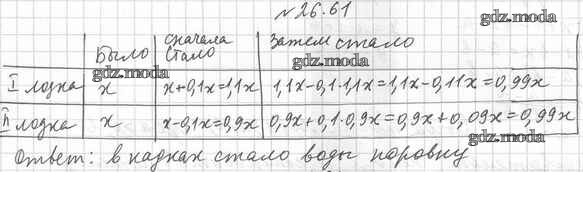 №26.61
gdz.moda
Было сначала стало Затем стало
gdz.moda gdz.moda
I лодка x x+0,1x=1,1x 1,1x-0,1·1,1x=1,1x-0,11x=0,99x
II лодка x x-0,1x=0,9x 0,9x+0,1·0,9x=0,9x+0,09x=0,99x
gdz.moda
Ответ: в кадках стало воды поровну